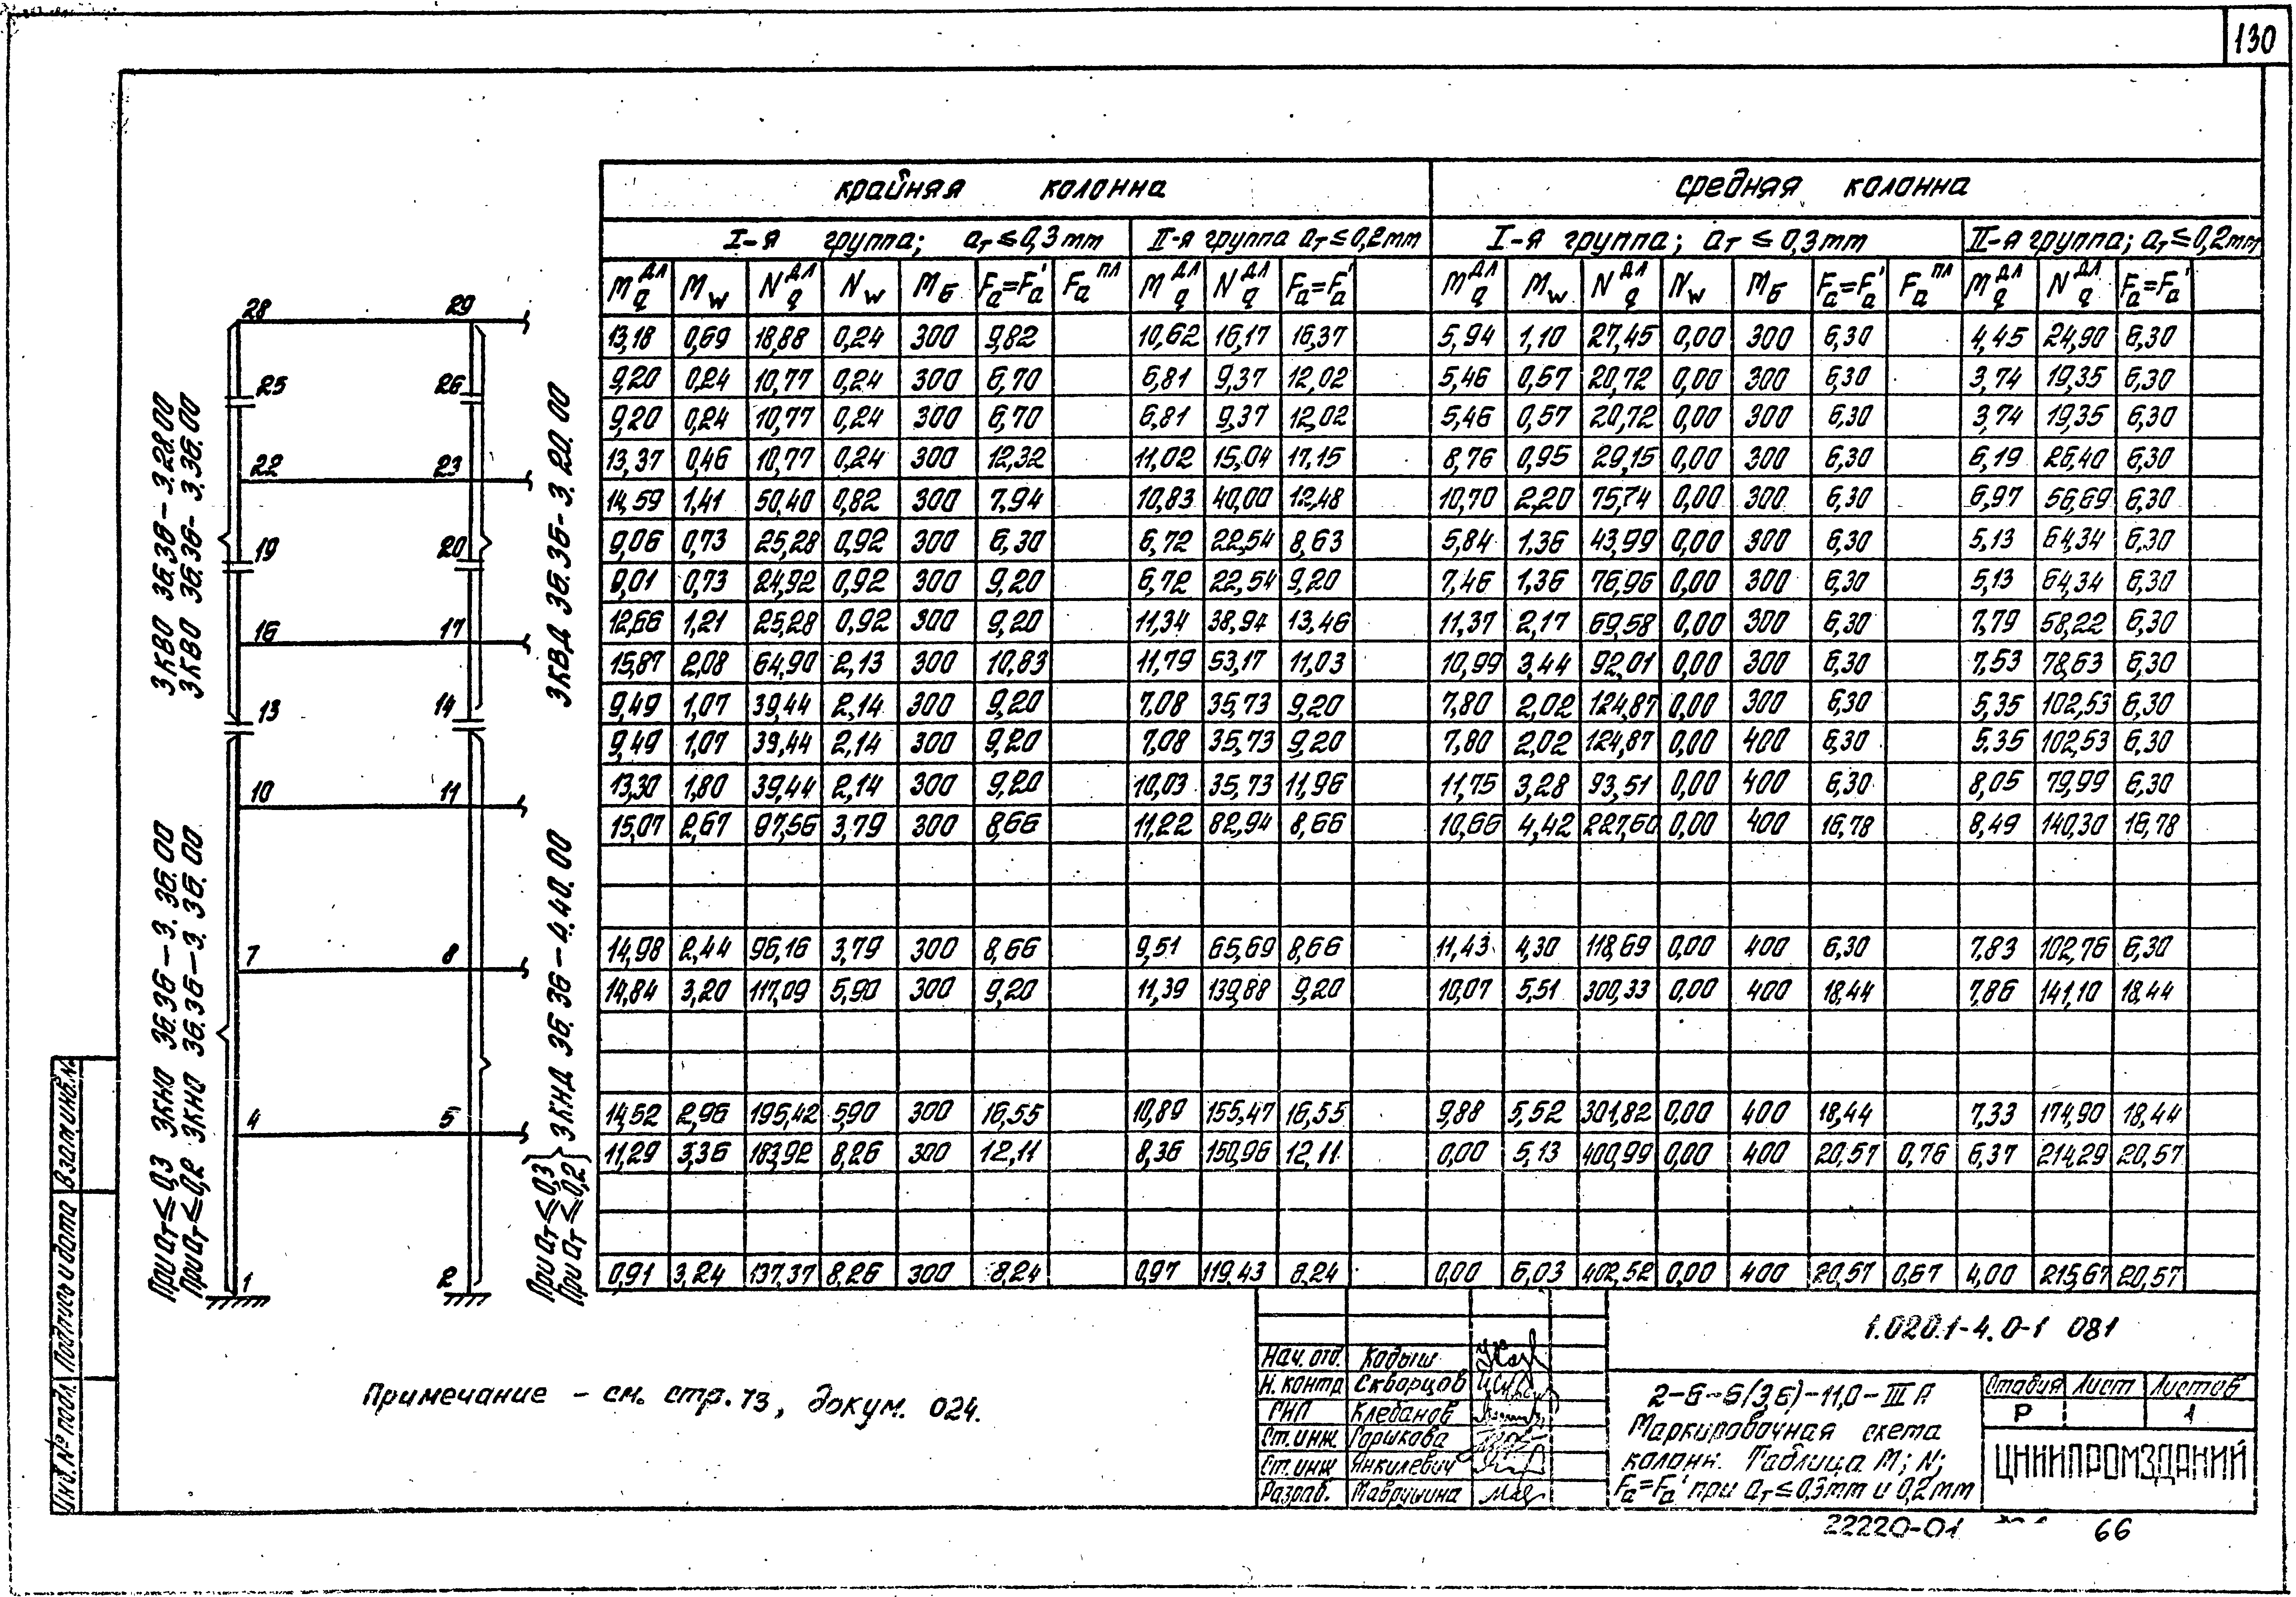 130
крайняя колонна | средняя колонна
I-я группа; aт ≤ 0,3mm | II-я группа aт ≤ 0,2mm | I-я группа; aт ≤ 0,3mm | II-я группа; aт ≤ 0,2mm
Mq дл | Mw | Nq дл | Nw | Mб | Fa=Fa' | Fa пл | Mq дл | Nq дл | Fa=Fa' | Mq дл | Mw | Nq дл | Nw | Mб | Fa=Fa' | Fa пл | Mq дл | Nq дл | Fa=Fa'
13,18 | 0,69 | 18,88 | 0,24 | 300 | 9,82 | | 10,62 | 16,17 | 16,37 | 5,94 | 1,10 | 27,45 | 0,00 | 300 | 6,30 | | 4,45 | 24,90 | 6,30
9,20 | 0,24 | 10,77 | 0,24 | 300 | 6,70 | | 6,81 | 9,37 | 12,02 | 5,46 | 0,57 | 20,72 | 0,00 | 300 | 6,30 | | 3,74 | 19,35 | 6,30
9,20 | 0,24 | 10,77 | 0,24 | 300 | 6,70 | | 6,81 | 9,37 | 12,02 | 5,46 | 0,57 | 20,72 | 0,00 | 300 | 6,30 | | 3,74 | 19,35 | 6,30
13,37 | 0,46 | 10,77 | 0,24 | 300 | 12,32 | | 11,02 | 15,04 | 17,15 | 8,76 | 0,95 | 29,15 | 0,00 | 300 | 6,30 | | 6,19 | 26,40 | 6,30
14,59 | 1,41 | 50,40 | 0,82 | 300 | 7,94 | | 10,83 | 40,00 | 12,48 | 10,70 | 2,20 | 75,74 | 0,00 | 300 | 6,30 | | 6,97 | 56,69 | 6,30
9,06 | 0,73 | 25,28 | 0,92 | 300 | 6,30 | | 6,72 | 22,54 | 8,63 | 5,84 | 1,36 | 43,99 | 0,00 | 300 | 6,30 | | 5,13 | 64,34 | 6,30
9,01 | 0,73 | 24,92 | 0,92 | 300 | 9,20 | | 6,72 | 22,54 | 9,20 | 7,46 | 1,36 | 76,96 | 0,00 | 300 | 6,30 | | 5,13 | 64,34 | 6,30
12,66 | 1,21 | 25,28 | 0,92 | 300 | 9,20 | | 11,34 | 38,94 | 13,46 | 11,37 | 2,17 | 69,58 | 0,00 | 300 | 6,30 | | 7,79 | 58,22 | 6,30
15,87 | 2,08 | 64,90 | 2,13 | 300 | 10,83 | | 11,79 | 53,17 | 11,03 | 10,99 | 3,44 | 92,01 | 0,00 | 300 | 6,30 | | 7,53 | 78,63 | 6,30
9,49 | 1,07 | 39,44 | 2,14 | 300 | 9,20 | | 7,08 | 35,73 | 9,20 | 7,80 | 2,02 | 124,87 | 0,00 | 300 | 6,30 | | 5,35 | 102,53 | 6,30
9,49 | 1,07 | 39,44 | 2,14 | 300 | 9,20 | | 7,08 | 35,73 | 9,20 | 7,80 | 2,02 | 124,87 | 0,00 | 400 | 6,30 | | 5,35 | 102,53 | 6,30
13,30 | 1,80 | 39,44 | 2,14 | 300 | 9,20 | | 10,03 | 35,73 | 11,96 | 11,75 | 3,28 | 93,51 | 0,00 | 400 | 6,30 | | 8,05 | 79,99 | 6,30
15,07 | 2,67 | 97,56 | 3,79 | 300 | 8,66 | | 11,22 | 82,94 | 8,66 | 10,66 | 4,42 | 227,60 | 0,00 | 400 | 16,78 | | 8,49 | 140,30 | 16,78
14,98 | 2,44 | 96,16 | 3,79 | 300 | 8,66 | | 9,51 | 65,69 | 8,66 | 11,43 | 4,30 | 118,69 | 0,00 | 400 | 6,30 | | 7,83 | 102,76 | 6,30
14,84 | 3,20 | 117,09 | 5,90 | 300 | 9,20 | | 11,39 | 139,88 | 9,20 | 10,07 | 5,51 | 300,33 | 0,00 | 400 | 18,44 | | 7,86 | 141,10 | 18,44
14,52 | 2,96 | 195,42 | 5,90 | 300 | 16,55 | | 10,89 | 155,47 | 16,55 | 9,88 | 5,52 | 301,82 | 0,00 | 400 | 18,44 | | 7,33 | 174,90 | 18,44
11,29 | 3,36 | 183,92 | 8,26 | 300 | 12,11 | | 8,36 | 150,96 | 12,11 | 0,00 | 5,13 | 400,99 | 0,00 | 400 | 20,57 | 0,76 | 6,37 | 214,29 | 20,57
0,91 | 3,24 | 137,37 | 8,26 | 300 | 8,24 | | 0,97 | 119,43 | 8,24 | 0,00 | 6,03 | 402,52 | 0,00 | 400 | 20,57 | 0,67 | 4,00 | 215,67 | 20,57
28 29
25 26
22 23
19 20
16 17
13 14
10 11
7 8
4 5
1 2
3КВО 36.36-3.28.00
3КВО 36.36-3.36.00
3КВД 36.36-3.20.00
При aт ≤ 0,3 3КНО 36.36-3.36.00
При aт ≤ 0,2 3КНО 36.36-3.36.00
При aт ≤ 0,3
При aт ≤ 0,2
3КНД 36.36-4.40.00
Примечание - см. стр. 73, докум. 024.
Взам инв.№
Подпись и дата
Инв.№ подл.
1.020.1-4.0-1 081
Нач. отд. Кодыш
Н. контр Скворцов
ГИП Клебанов
Ст. инж Горшкова
Ст. инж Янкилевич
Разраб. Маврушина
2-6-6(3,6)-11,0-III А
Маркировочная схема
колонн. Таблица M; N;
Fa=Fa' при aт ≤ 0,3mm и 0,2mm
Стадия Лист Листов
Р 1
ЦНИИПРОМЗДАНИЙ
22220-01 66